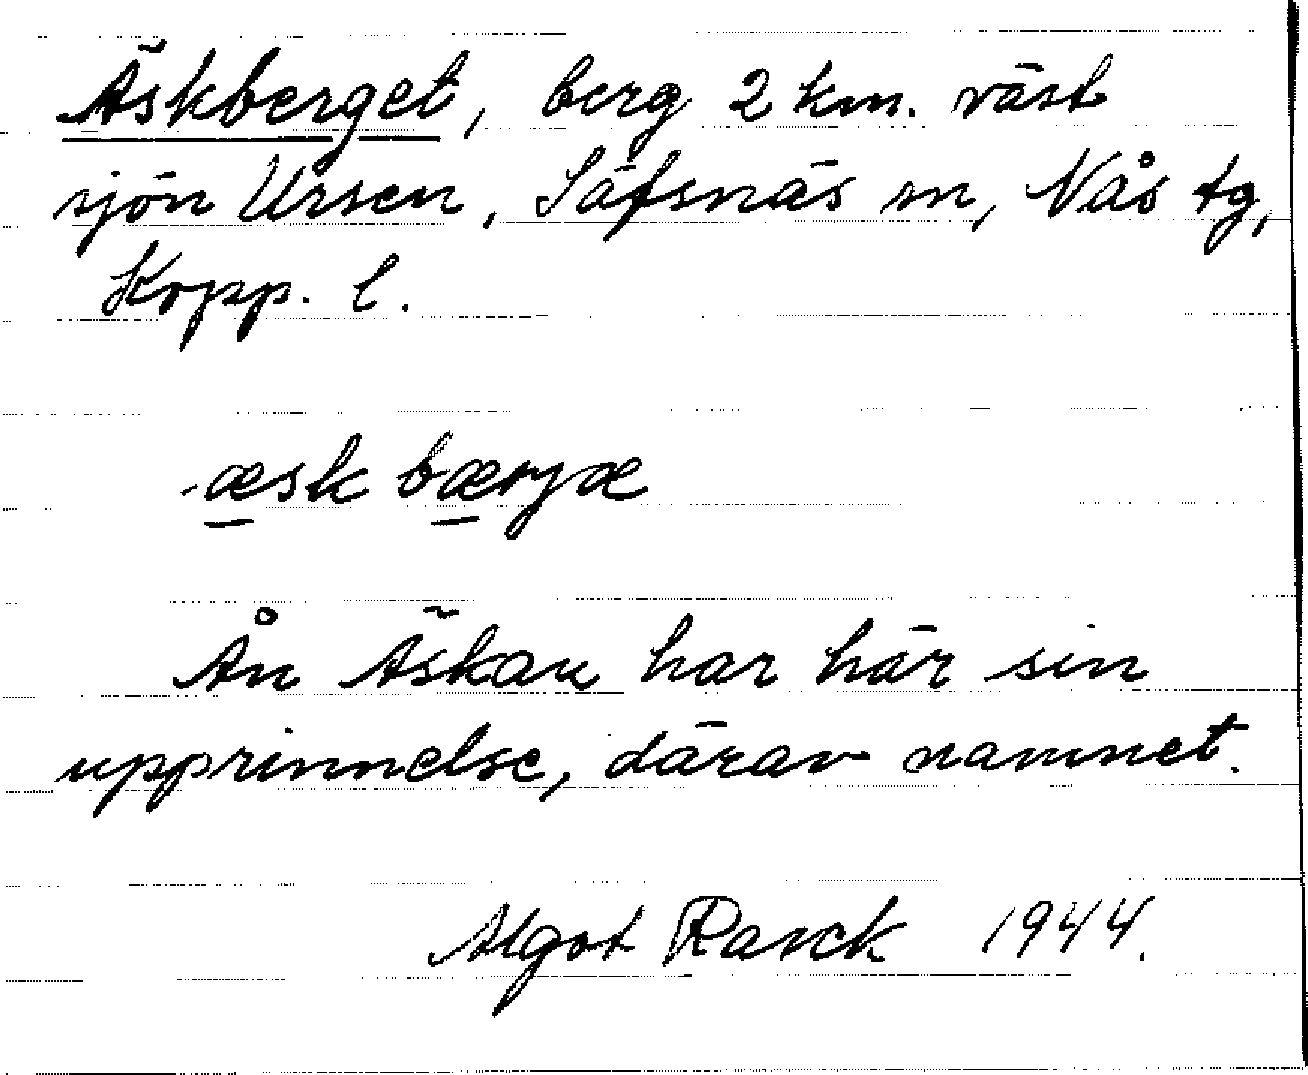 Äskberget, berg 2 km. väst
sjön Ursen, Säfsnäs sn, Nås tg,
Kopp. l.
æsk bæryæ
Ån Äskan har här sin
upprinnelse, därav namnet.
Algot Rarck 1944.